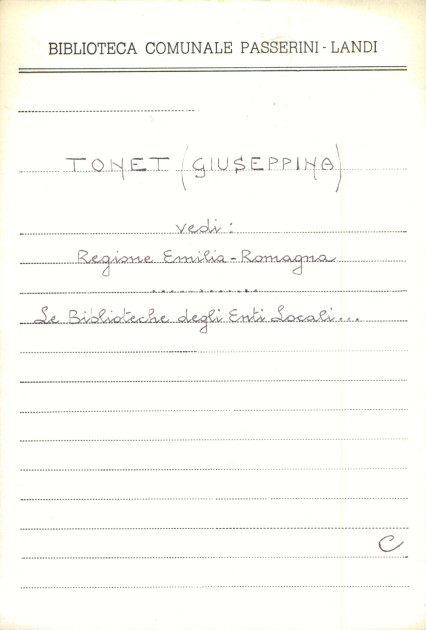 BIBLIOTECA COMUNALE PASSERINI - LANDI
TONET (GIUSEPPINA)
vedi :
Regione Emilia - Romagna
............
Le Biblioteche degli Enti Locali...
C